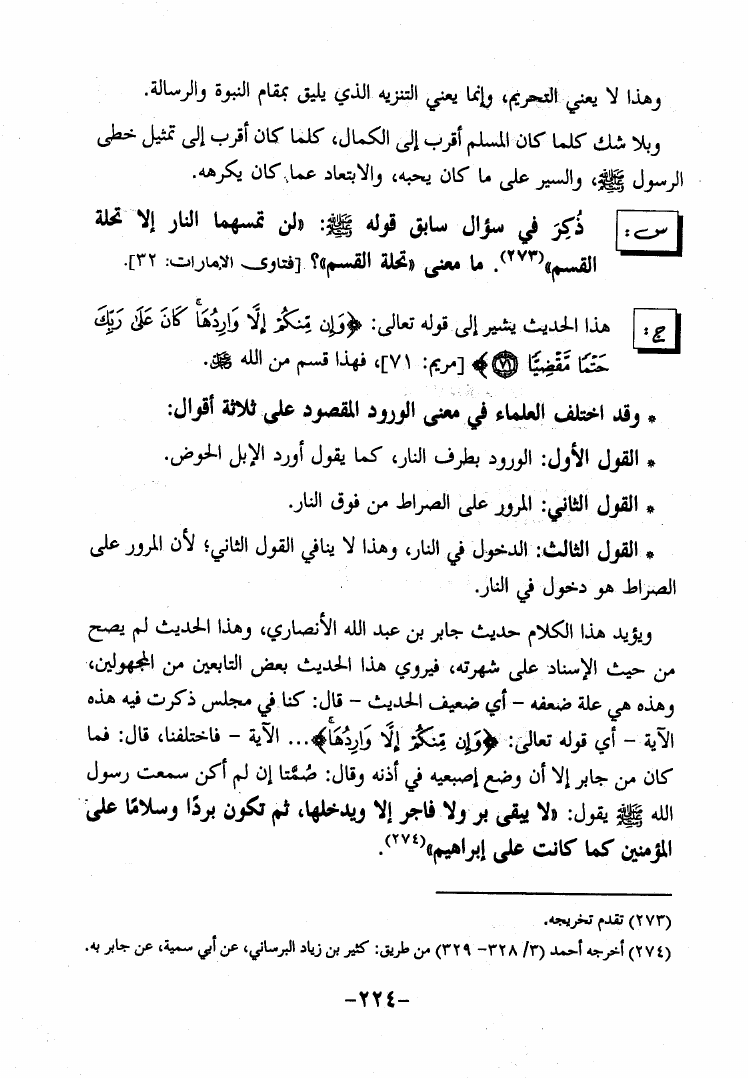 وهذا لا يعني التحريم، وإنما يعني التنزيه الذي يليق بمقام النبوة والرسالة.
وبلا شك كلما كان المسلم أقرب إلى الكمال، كلما كان أقرب إلى تمثيل خطى
الرسول ﷺ، والسير على ما كان يحبه، والابتعاد عما كان يكرهه.
س: ذُكِرَ في سؤال سابق قوله ﷺ: «لن تمسهما النار إلا تحلة
القسم»(٢٧٣). ما معنى «تحلة القسم»؟ [فتاوى الامارات: ٣٢].
ج: هذا الحديث يشير إلى قوله تعالى: ﴿وَإِن مِّنكُمْ إِلَّا وَارِدُهَا ۚ كَانَ عَلَىٰ رَبِّكَ
حَتْمًا مَّقْضِيًّا ۝٧١﴾ [مريم: ٧١]، فهذا قسم من الله ﷻ.
* وقد اختلف العلماء في معنى الورود المقصود على ثلاثة أقوال:
* القول الأول: الورود بطرف النار، كما يقول أورد الإبل الحوض.
* القول الثاني: المرور على الصراط من فوق النار.
* القول الثالث: الدخول في النار، وهذا لا ينافي القول الثاني؛ لأن المرور على
الصراط هو دخول في النار.
ويؤيد هذا الكلام حديث جابر بن عبد الله الأنصاري، وهذا الحديث لم يصح
من حيث الإسناد على شهرته، فيروي هذا الحديث بعض التابعين من المجهولين،
وهذه هي علة ضعفه - أي ضعيف الحديث - قال: كنا في مجلس ذكرت فيه هذه
الآية - أي قوله تعالى: ﴿وَإِن مِّنكُمْ إِلَّا وَارِدُهَا ۚ﴾... الآية - فاختلفنا، قال: فما
كان من جابر إلا أن وضع إصبعيه في أذنه وقال: صُمَّتا إن لم أكن سمعت رسول
الله ﷺ يقول: «لا يبقى بر ولا فاجر إلا ويدخلها، ثم تكون بردًا وسلامًا على
المؤمنين كما كانت على إبراهيم»(٢٧٤).
(٢٧٣) تقدم تخريجه.
(٢٧٤) أخرجه أحمد (٣/ ٣٢٨- ٣٢٩) من طريق: كثير بن زياد البرساني، عن أبي سمية، عن جابر به.
-٢٢٤-